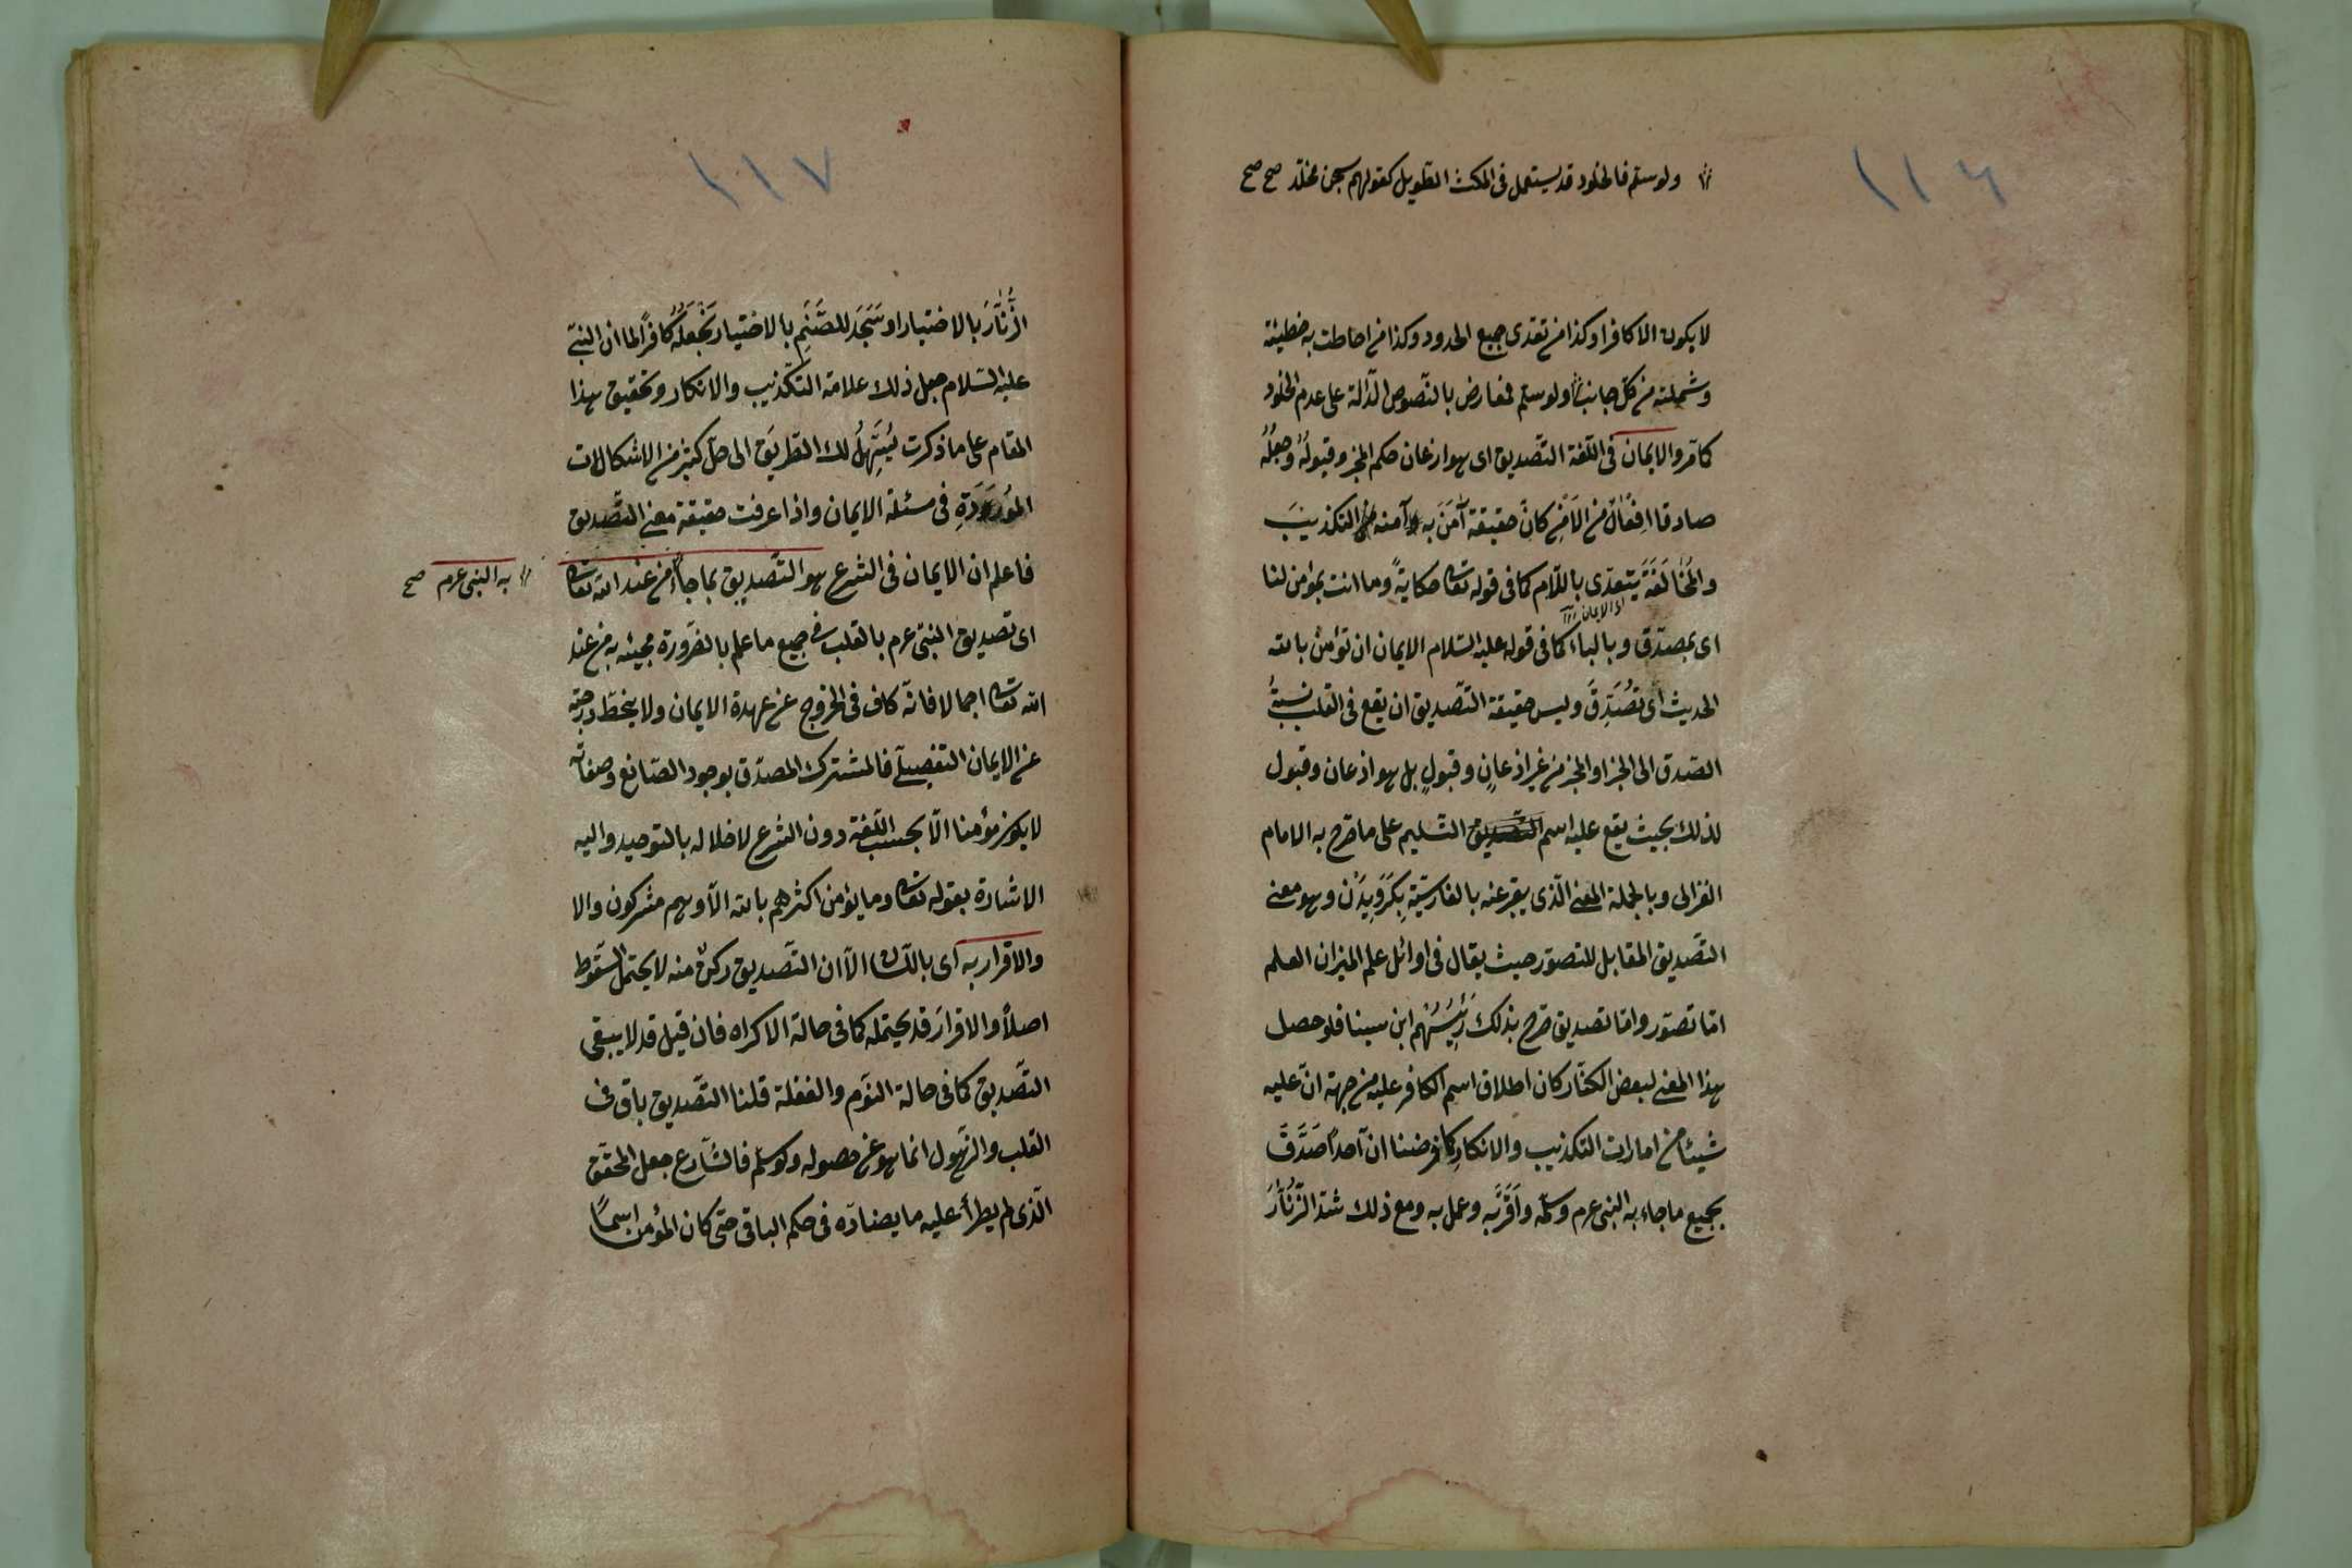 ١١٦
ولو سلم فالخلود قد يستعمل فى المكث الطويل كقولهم سجن مخلد صح صح
لا يكون الا كافرا وكذا من تعدى جميع الحدود وكذا من احاطت به خطيئته
وشملته من كل جانب ولو سلم فمعارض بالنّصوص الدّالة على عدم الخلود
كما مّر والايمان فى اللّغة التّصديق اى هو اذعان حكم المخبر وقبولُهُ وجعلُهُ
صادقا اِفعالٌ من الاَمْنِ كانّ حقيقة آمَنَ به آمنه التكذيبَ
والمخالَفَةَ يتعدّى باللّام كما فى قوله تعالى حكايةً وما انت بمؤمن لنا
اى بمصدّق وبالباء كما فى قوله عليه السّلام الايمان ان تؤمن بالله
الايمان
الحديث اى تُصَدِّقَ وليس حقيقة التّصديق ان يقع فى القلب نسبةُ
الصّدق الى الخبر او المخبر من غير اذعانٍ وقبولٍ بل هو اذعان وقبول
لذلك بحيث يقع عليه اسم التّسليم على ما صرّح به الامام
الغزالى وبالجملة المعنى الّذى يعبّر عنه بالفارسيّةِ بِكَرَوِيدَنْ وهو معنى
التّصديق المقابل للتصوّر حيث يقال فى اوائل علم الميزان العلم
امّا تصوّر وامّا تصديق صرّح بذلك رَئِيسُهُم ابن سينا فلو حصل
هذا المعنى لبعض الكفّار كان اطلاق اسم الكافر عليه من جهة انّ عليه
شيئا من امارات التكذيب والانكارِ كما فرضنا ان آحداً صَدَّقَ
بجميع ما جاء به النبى عرم وسلّمه واَقَرَّبه وعمل به ومع ذلك شدّ الزُّنّارَ
١١٧
الزُّنّارَ بالاختيار او سَجَدَ للصَّنَمِ بالاختيار نَجْعَلُهُ كافرًا لما ان النبىّ
عليه السّلام جعل ذلك علامة التّكذيب والانكار وتحقيق هذا
المقام على ما ذكرت يُسَهِّلُ لك الطّريَق الى حلّ كثير من الاشكالات
المُورَدَةِ فى مسئلة الايمان واذا عرفت حقيقة معنى التّصديق
فاعلم ان الايمان فى الشرع هو التّصديق بما جاء من عند الله تعالى
به النبى عرم صح
اى تصديق النبىّ عرم بالقلب فى جميع ما علم بالضّرورة مجيئه به من عند
الله تعالى اجمالا فانّه كاف فى الخروج عن عهدة الايمان ولا ينحطّ درجته
عن الايمان التفصيلىّ فالمشترك المصدّق بوجود الصّانع وصفاته
لا يكون مؤمنا الّا بحسب اللّغة دون الشرع لاخلاله بالتوحيد واليه
الاشارة بقوله تعالى وما يؤمن اكثرهم بالله الّا وهم مشركون والا
والاقرار به اى باللّسان الّا ان التّصديق ركنٌ منه لا يحتمل السّقوط
اصلاً والاقرارَ قد يحتمله كما فى حالة الاكراه فان قيل قد لا يبقى
التّصديق كما فى حالة النّوم والغفلة قلنا التّصديق باق فى
القلب والذّهول انما هو عن حصوله ولو سلّم فالشّارع جعل المحقّق
الّذى لم يطرأ عليه ما يضادّه فى حكم الباقى حتى كان المؤمن اسماً